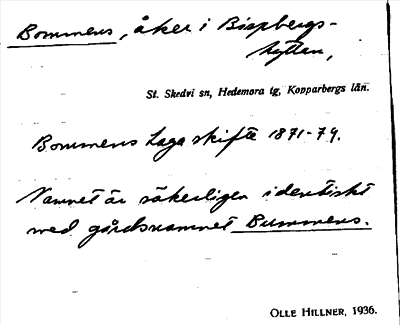 Bommens, åker i Bispbergs-
hyttan,
St. Skedvi sn, Hedemora tg, Kopparbergs län.
Bommens Laga skifte 1871-79.
Namnet är säkerligen identiskt
med gårdsnamnet Bummens.
OLLE HILLNER, 1936.